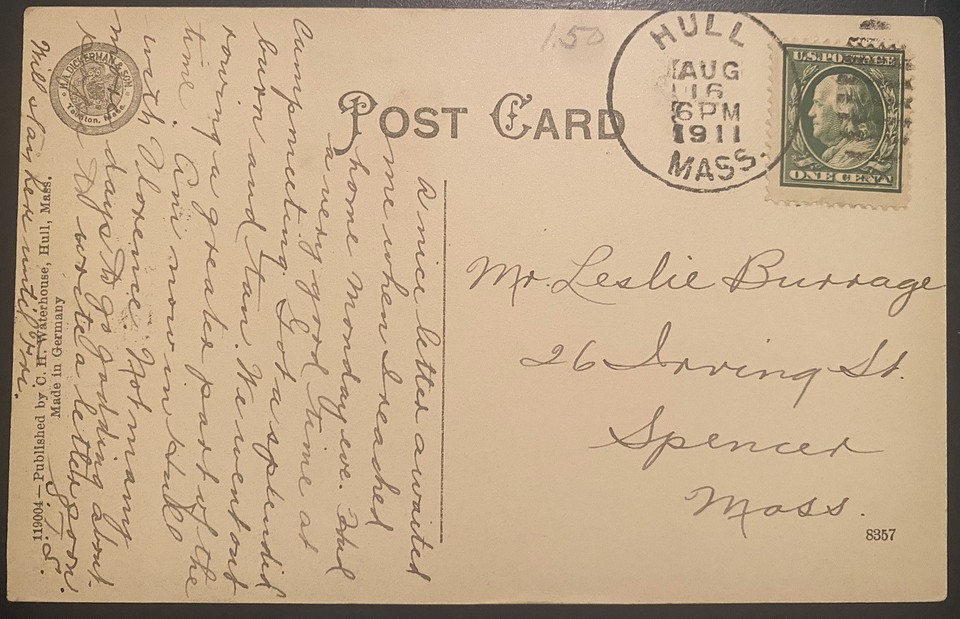 1.50
HULL
AUG
16
6 PM
1911
MASS.
U.S. POSTAGE
ONE CENT
POST CARD
H.A. DICKERMAN & SON.
Taunton, Mass.
Mr. Leslie Burrage
26 Irving St.
Spencer
Mass.
8357
A nice letter awaited
me when I reached
home Monday eve. Had
a very good time at
Campmeeting. Got a splendid
burn and tan. We went out
rowing a greater part of the
time. Am now in Hull
with Florence. Not many
more days to go gadding about.
I'll write a letter soon.
J. S.
Will stay here until Fri.
119004—Published by C. H. Waterhouse, Hull, Mass.
Made in Germany